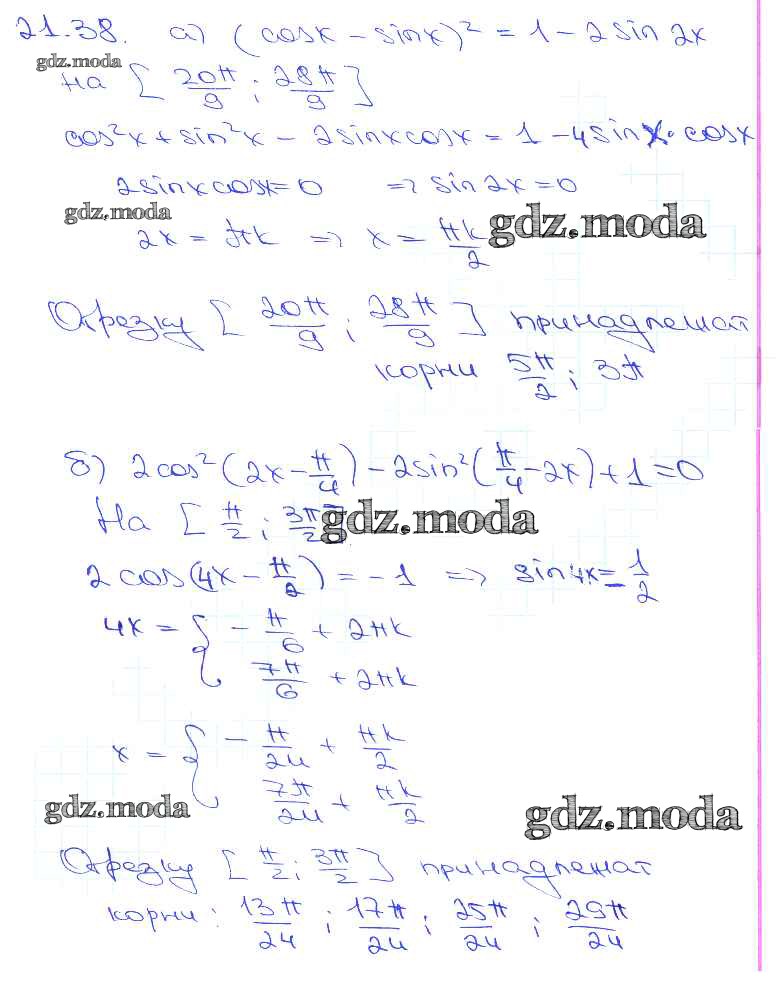 21.38. а) (cosx - sinx)² = 1 - 2 sin 2x
gdz.moda
На [20π/9 ; 28π/9]
cos²x + sin²x - 2sinxcosx = 1 - 4sinx·cosx
2sinxcosx=0 => sin2x=0
gdz.moda
2x = πk => x = πk/2
gdz.moda
Отрезку [20π/9 ; 28π/9] принадлежат
корни 5π/2 ; 3π
б) 2cos²(2x - π/4) - 2sin²(π/4 - 2x) + 1 = 0
На [π/2 ; 3π/2]
gdz.moda
2cos(4x - π/2) = -1 => sin4x = -1/2
4x = { -π/6 + 2πk
7π/6 + 2πk
x = { -π/24 + πk/2
7π/24 + πk/2
gdz.moda
gdz.moda
Отрезку [π/2 ; 3π/2] принадлежат
корни: 13π/24 ; 17π/24 ; 25π/24 ; 29π/24